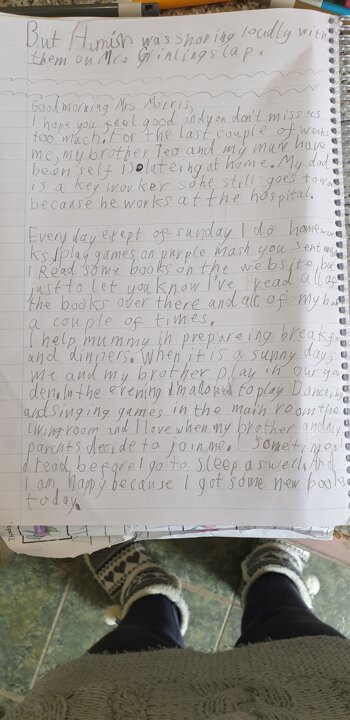 But Hamish was snoring loudly with
them on Mrs Grinlings lap.
Good morning Mrs Morris,
I hope you feel good and you don't miss us
too much. For the last couple of weeks
me, my brother Teo and my mum have
been self isolateing at home. My dad
is a key worker so he still goes to wor
because he works at the hospital.
Every day exept of sunday I do homewor
ks, play games on purple mash you sent me
I Read some books on the website, but
just to let you know I've read all of
the books over there and all of my boo
a couple of times.
I help mummy in prepareing breakfa
and dinners. When it is a sunny day,
me and my brother play in our gar
den. In the evening I'm allowed to play Dancing
and singing games in the main room the
living room and I love when my brother and my
parents decide to join me. I sometimes
read before I go to sleep as well. And
I am happy because I got some new books
today.